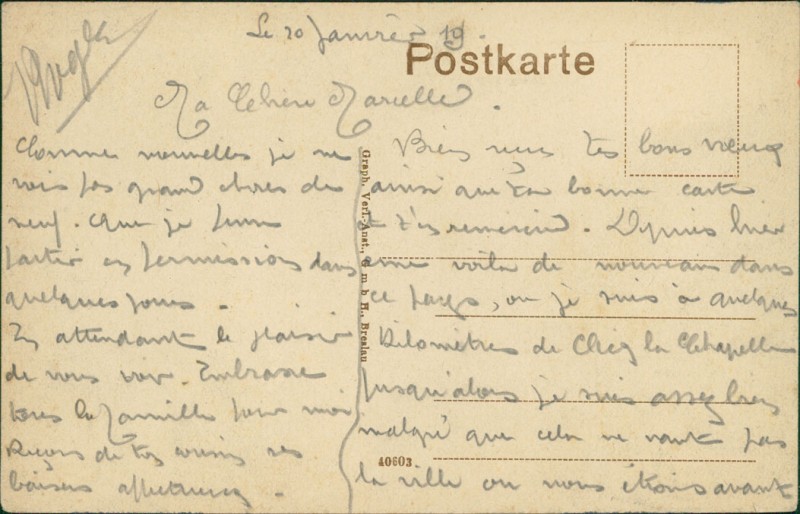 Le 20 Janvier 19.
Postkarte
Ma Chère Marcelle.
Bien reçu tes bons vœux
ainsi que ta bonne carte
et t'en remercie. Depuis hier
me voila de nouveau dans
ce pays, ou je suis à quelques
Kilomètres de la Chapelle
jusqu'alors je suis assez bien
malgré que cela ne vaut pas
la ville ou nous étions avant
Comme nouvelles je ne
vois pas grand choses de
neuf. que je
partir en permissions dans
quelques jours.
En attendant le plaisir
de vous voir. Embrasse
tous la famille pour moi
Reçois de ton cousin ses
baisers affectueux.
Graph. Verl.-Anst., G. m. b. H., Breslau
40603